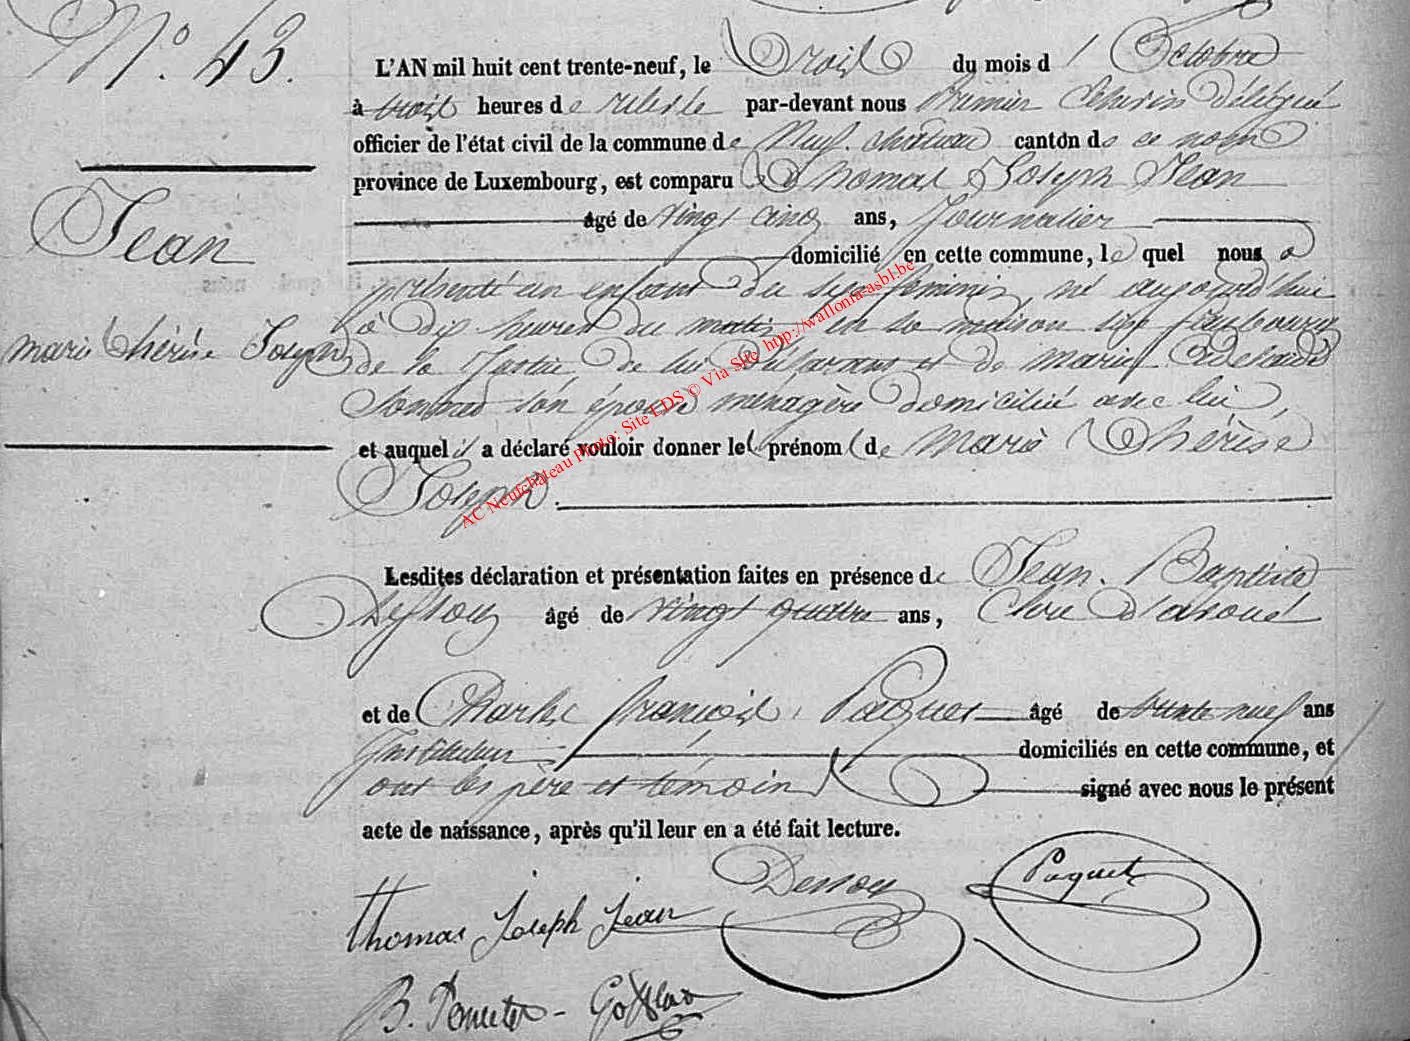 N.º 43.
L'AN mil huit cent trente-neuf, le Trois du mois d' Octobre
à trois heures de relevée par-devant nous Premier Echevin Délégué
officier de l'état civil de la commune de Neufchateau canton de ce nom
province de Luxembourg, est comparu Thomas Joseph Jean
Jean
âgé de vingt cinq ans, Journalier
domicilié en cette commune, le quel nous a
présenté un enfant du sexe feminin, né aujourd'hui
à dix heures du matin en sa maison sise faubourg
marie thérèse Joseph
de la Justice de lui Déclarant et de Marie Adelaide
son épouse ménagère domicilié avec lui,
et auquel il a déclaré vouloir donner les prénoms de Marie Thérèse
Joseph.
Lesdites déclaration et présentation faites en présence de Jean Baptiste
Dessoy âgé de vingt quatre ans, Clerc d'avoué
et de Charles françois Paquet âgé de trente neuf ans
Instituteur domiciliés en cette commune, et
ont les père et témoins signé avec nous le présent
acte de naissance, après qu'il leur en a été fait lecture.
Thomas Joseph Jean Dessoy Paquet
AC Neufchateau Photo: Site LDS © Via Site http://wallonia-asbl.be